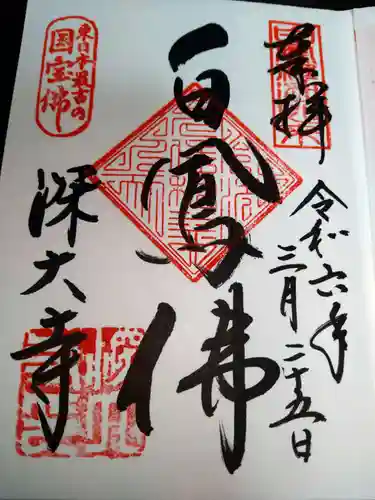 奉拝
令和六年
三月二十五日
白鳳佛
深大寺
東日本最古の
国宝佛